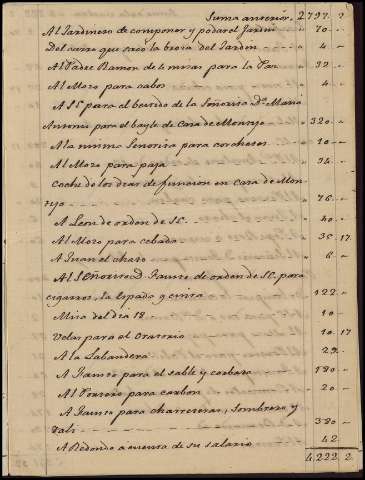 Suma anterior. 2797. 2
Al Jardinero de componer y podar el Jardin " 70. "
Del carro que sacó la broza del Jardin " 4 "
Al Padre Ramon de 4 misas para la Paz " 32 "
Al Mozo para cabos " 4 "
A SE para el vestido de la Señorita Da. Maria
Antonia para el bayle de Casa de Montijo " 320. "
A la misma Señorita para corchetes " 10 "
Al Mozo para paja " 34. "
Coche de los dias de funcion en Casa de Mon
tijo " 76. "
A Leon de orden de SE. " 40. "
Al Mozo para cebada " 35. 17
A Juan el chato " 6. "
Al Señorito Dn. Jaime de orden de SE. para
cigarros, la espada y cinta 122. "
Misa del dia 18 10. "
Velas para el Oratorio 10. 17
A la Lavandera 29. "
A Jaime para el sable y corbata 180 "
Al Portero para carbon " 20 "
A Jaime para charreteras, Sombrero y
" 380 "
A Redondo a cuenta de su salario 42
4,222. 2